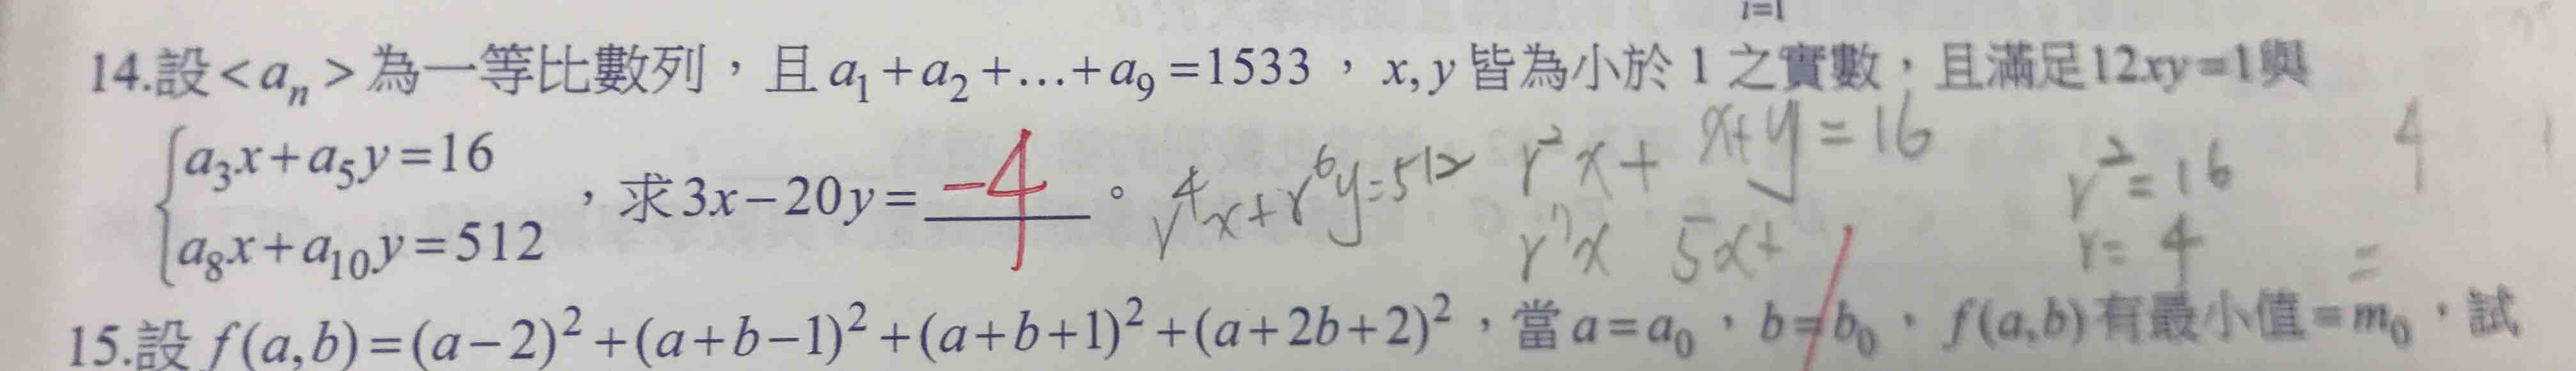 i=1
14.設<aₙ>為一等比數列，且a₁+a₂+…+a₉=1533，x,y皆為小於1之實數，且滿足12xy=1與
{a₃x+a₅y=16
a₈x+a₁₀y=512
，求3x−20y= −4 。
r⁴x+r⁶y=512
r²x+ x+y=16
r⁷x 5x+
r²=16
r=4
4
=
15.設f(a,b)=(a−2)²+(a+b−1)²+(a+b+1)²+(a+2b+2)²，當a=a₀，b=b₀，f(a,b)有最小值=m₀，試